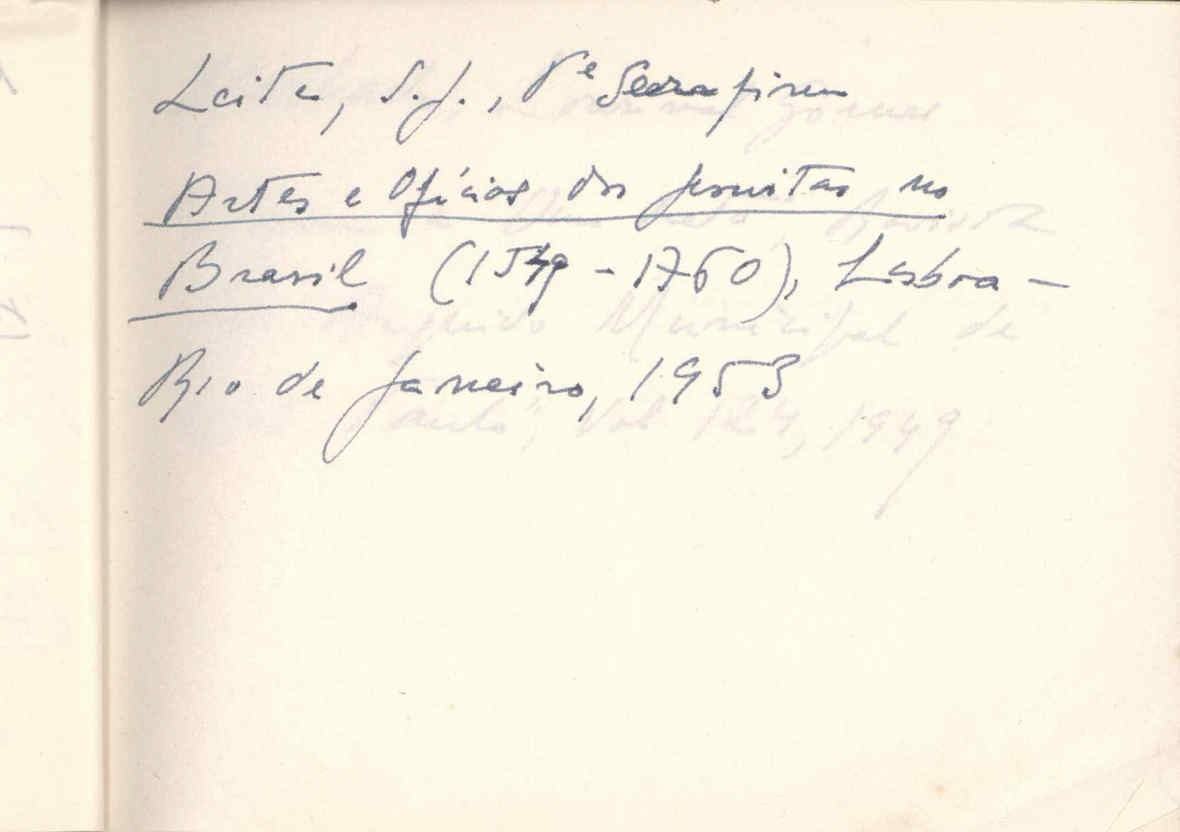 Leite, S.J., Pe Serafim
Artes e Ofícios dos Jesuitas no
Brasil (1549 - 1760), Lisboa -
Rio de Janeiro, 1953